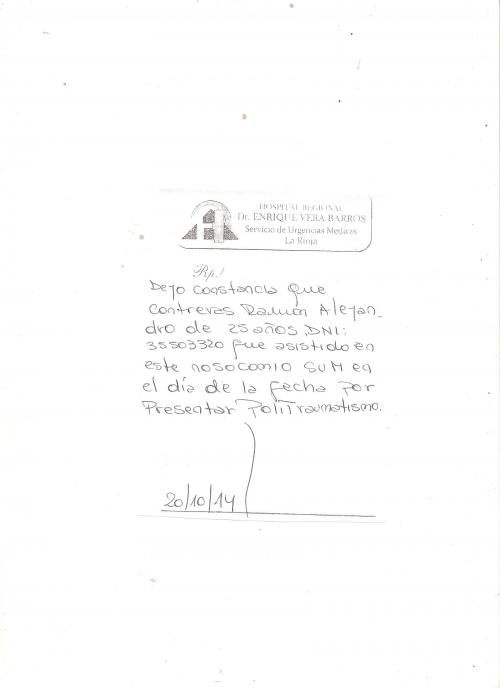 HOSPITAL REGIONAL
Dr. ENRIQUE VERA BARROS
Servicio de Urgencias Medicas
La Rioja
Rp./
Dejo constancia que
contreras Ramón Alejan_
dro de 25 años, DNI:
35503320 fue asistido en
este nosocomio SUM en
el día de la fecha por
Presentar PoliTraumatismo.
20/10/14